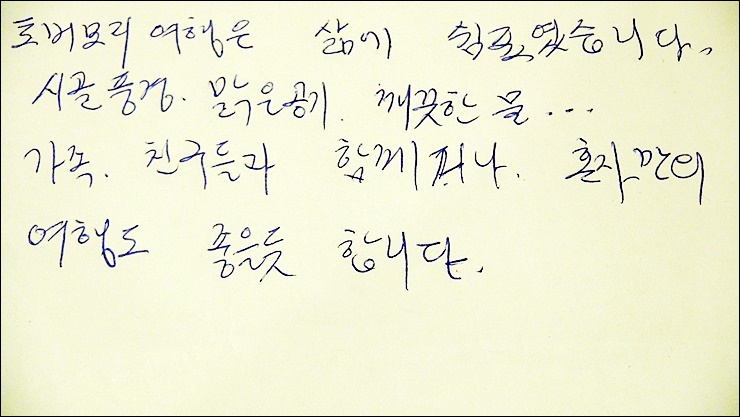 토버모리 여행은 삶에 쉼표였습니다.
시골풍경. 맑은공기. 깨끗한 물...
가족. 친구들과 함께거나. 혼자만의
여행도 좋을듯 합니다.